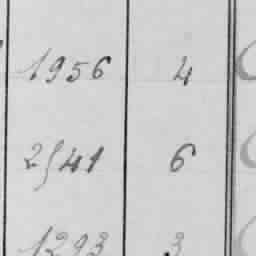 1956 4
2541 6
1293 3